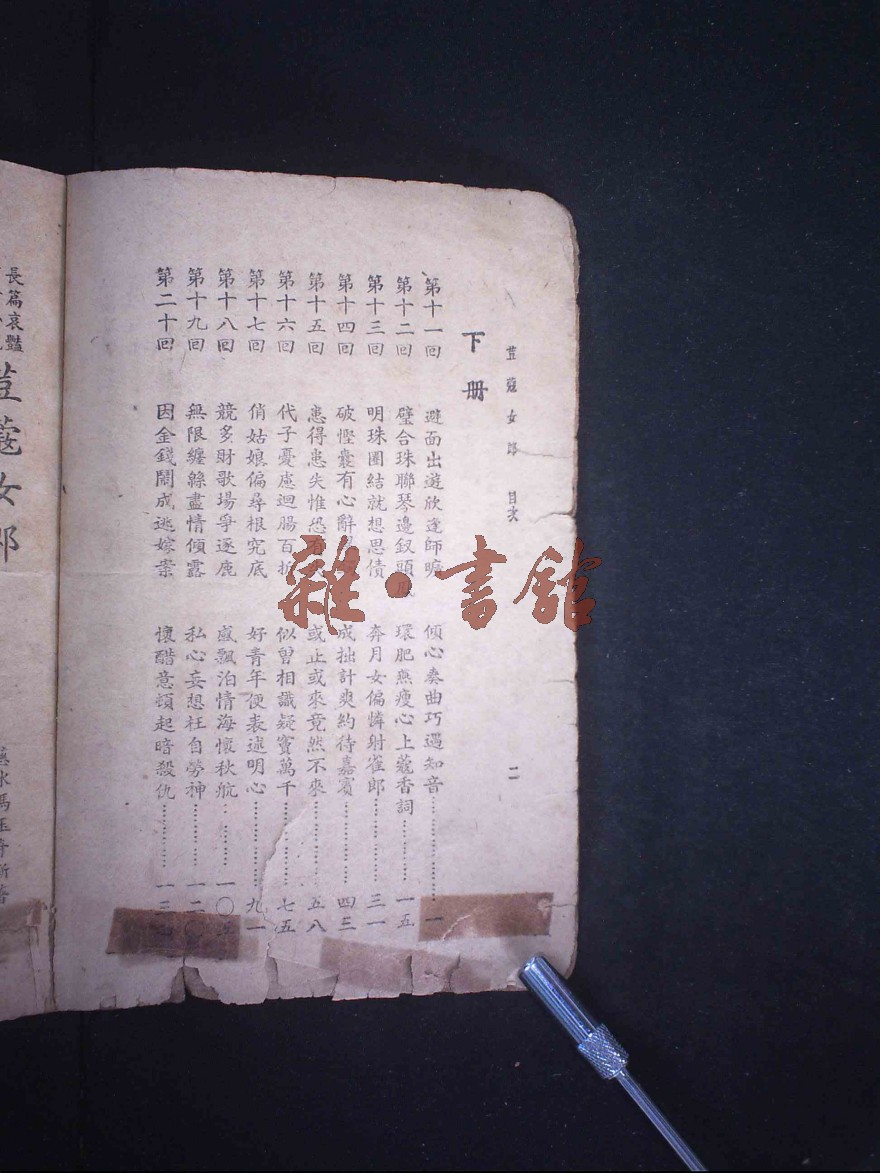 荳蔻女郎 目次 二
下册
第十一回 避面出遊欣逢師曠 傾心奏曲巧遇知音…………………一
第十二回 璧合珠聯琴邊釵頭 環肥燕瘦心上蔻香詞…………一五
第十三回 明珠團結就想思債 奔月女偏憐射雀郎…………三一
第十四回 破慳囊有心辭 成拙計爽約待嘉賓………………四三
第十五回 患得患失惟恐 或止或來竟然不來………………五八
第十六回 代子憂慮迴腸百折 似曾相識疑竇萬千………………七五
第十七回 俏姑娘偏尋根究底 好青年便表述明心………………九一
第十八回 競多財歌場爭逐鹿 感飄泊情海懷秋航…………一〇
第十九回 無限纏綿盡情傾露 私心妄想枉自勞神…………一二
第二十回 因金錢鬧成逃嫁案 懷醋意頓起暗殺仇…………一三
長篇哀豔
荳蔻女郎
雜·書館